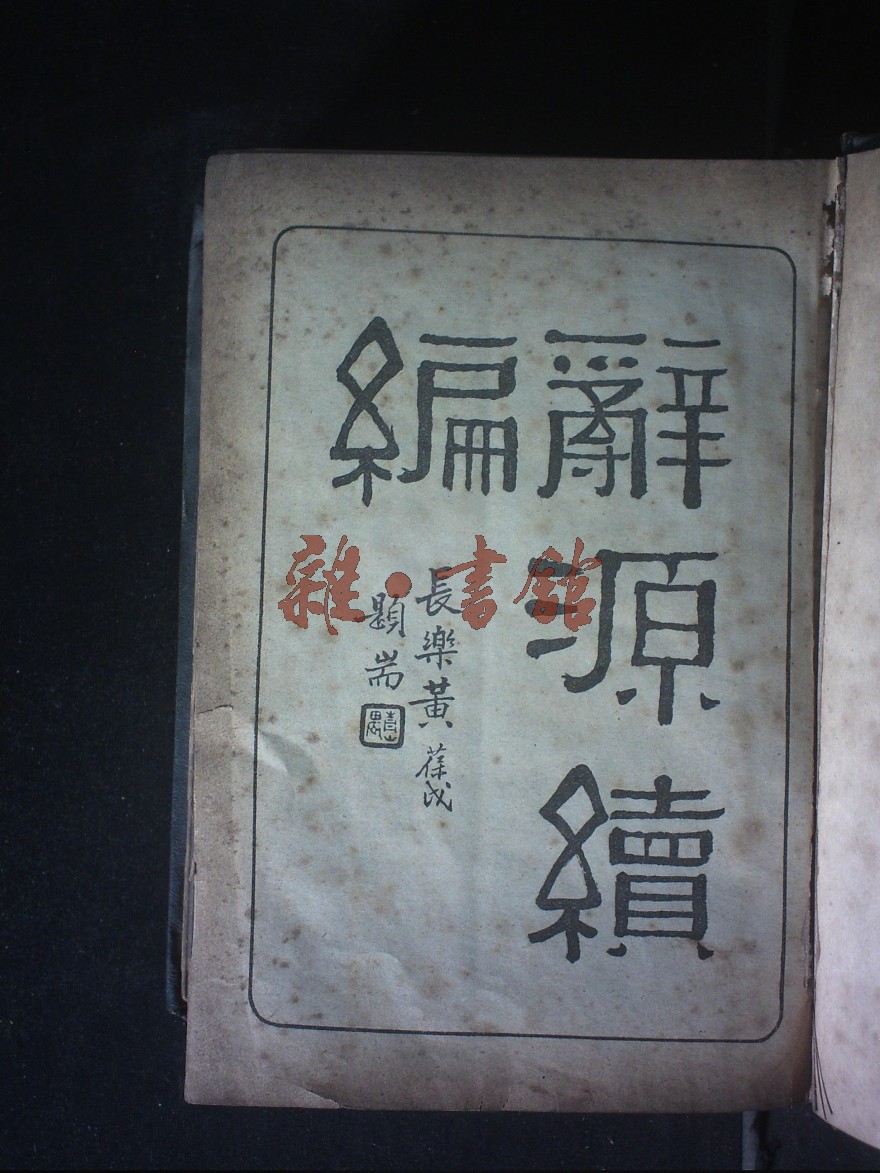 辭源續
編
長樂黃葆戉
題耑
雜·書館